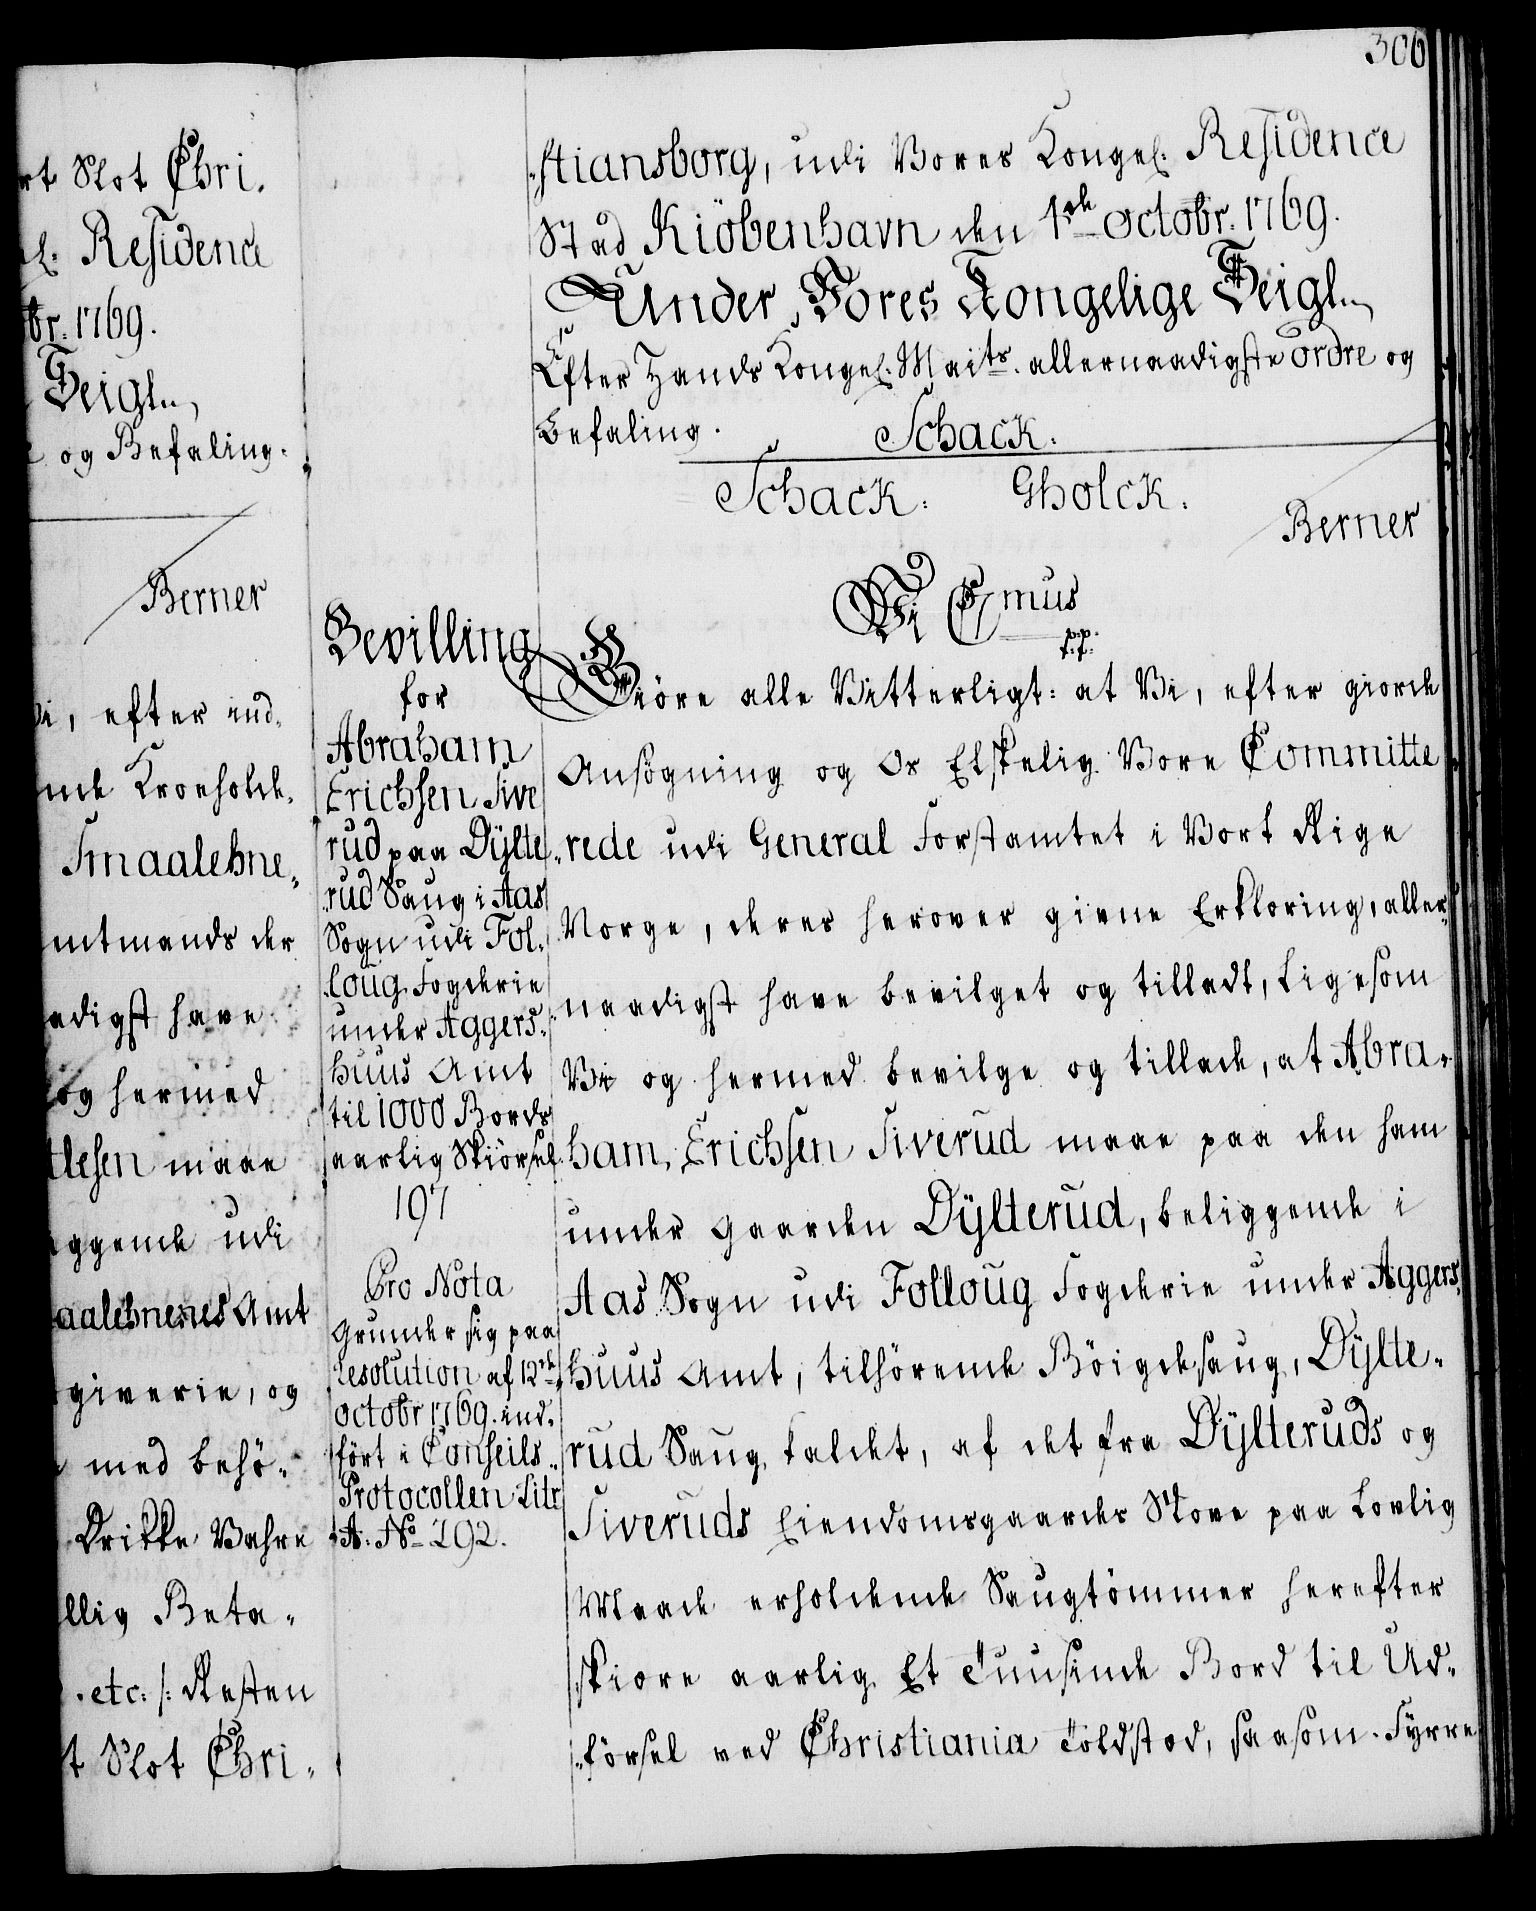 306
rt Slot Chri.
el. Residence
tbr. 1769.
Seigl.,
e og Befaling.
Berner
Vi, efter ind-
nde Kronholde,
Smaalehne,,
mtmands der
adigst have
og hermed
tlesen maae
iggende udi
aalehnenes Amt
giverie, og
med behö-,
Drikke Vahre
llig Beta-
etc: /: Resten
t Slot Chri-
Bevilling
for
Abraham
Erichsen Sive
rud paa Dÿlte,,
rud Saug i Aas
Sogn udi Fol-
loug Fogderie
under Aggers-
huus Amt
til 1000 Bords
aarlig Skiörsel
197
Pro Nota
grunder sig paa
Resolution af 12te
octobr 1769. ind-
fört i Conseils-
Protocollen Litr
A. No 292.
stiansborg, udi Vores Kongel. Residence
Stad Kiöbenhavn den 1ste Octobr. 1769.
Under Vores Kongelige Seigl.,
Efter Hands Kongel. Maits. allernaadigste ordre og
Befaling. Schack.
Schack. Gholck.
Berner
Vi Cmus
p.p.
Giöre alle Vitterligt: at Vi, efter giorde
Ansögning og Os Elskelig Vore Committe
rede udi General Forstamtet i Vort Rige
Norge, deres herover givne Erklöring, aller-
naadigst have bevilget og tilladt, ligesom
Vi og hermed bevilge og tillade, at Abra-
ham Erichsen Siverud maae paa den ham
under Gaarden Dÿlterud, beliggende i
Aas Sogn udi Folloug Fogderie under Aggers,
huus Amt, tilhörende Böigdesaug, Dÿlte-
rud Saug kaldet, af det fra Dÿlteruds og
Siveruds Eiendomsgaarder Skove paa Lovlig
Maade erholdende Saugtömmer herefter
skiore aarlig Et Tuusinde Bord til Ud-
försel ved Christiania Toldsted, saasom Fyrre